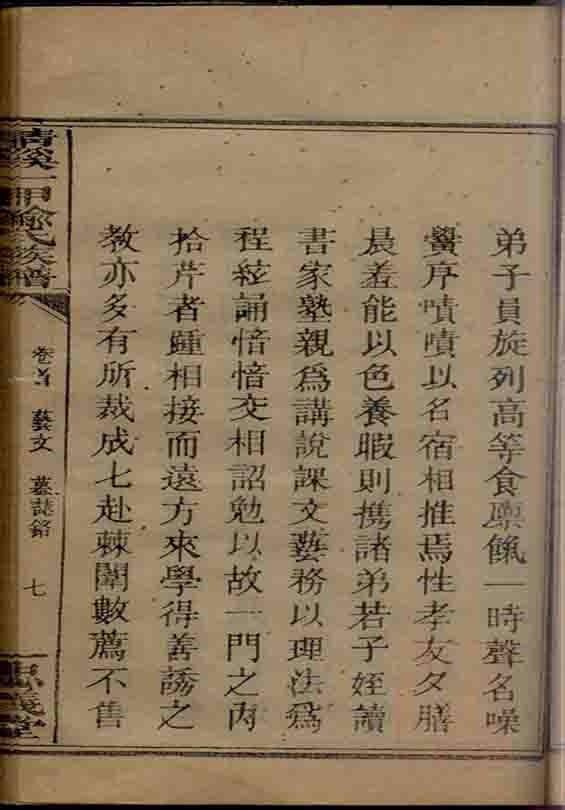 弟子員旋列高等食廩餼一時聲名噪
黌序嘖嘖以名宿相推焉性孝友夕膳
晨羞能以色養暇則携諸弟若子姪讀
書家塾親為講說課文藝務以理法為
程絃誦愔愔交相詔勉以故一門之內
拾芹者踵相接而遠方來學得善誘之
教亦多有所裁成七赴棘闈數薦不售
清溪一甲余氏族譜
卷首 藝文 墓誌銘 七
忠義堂